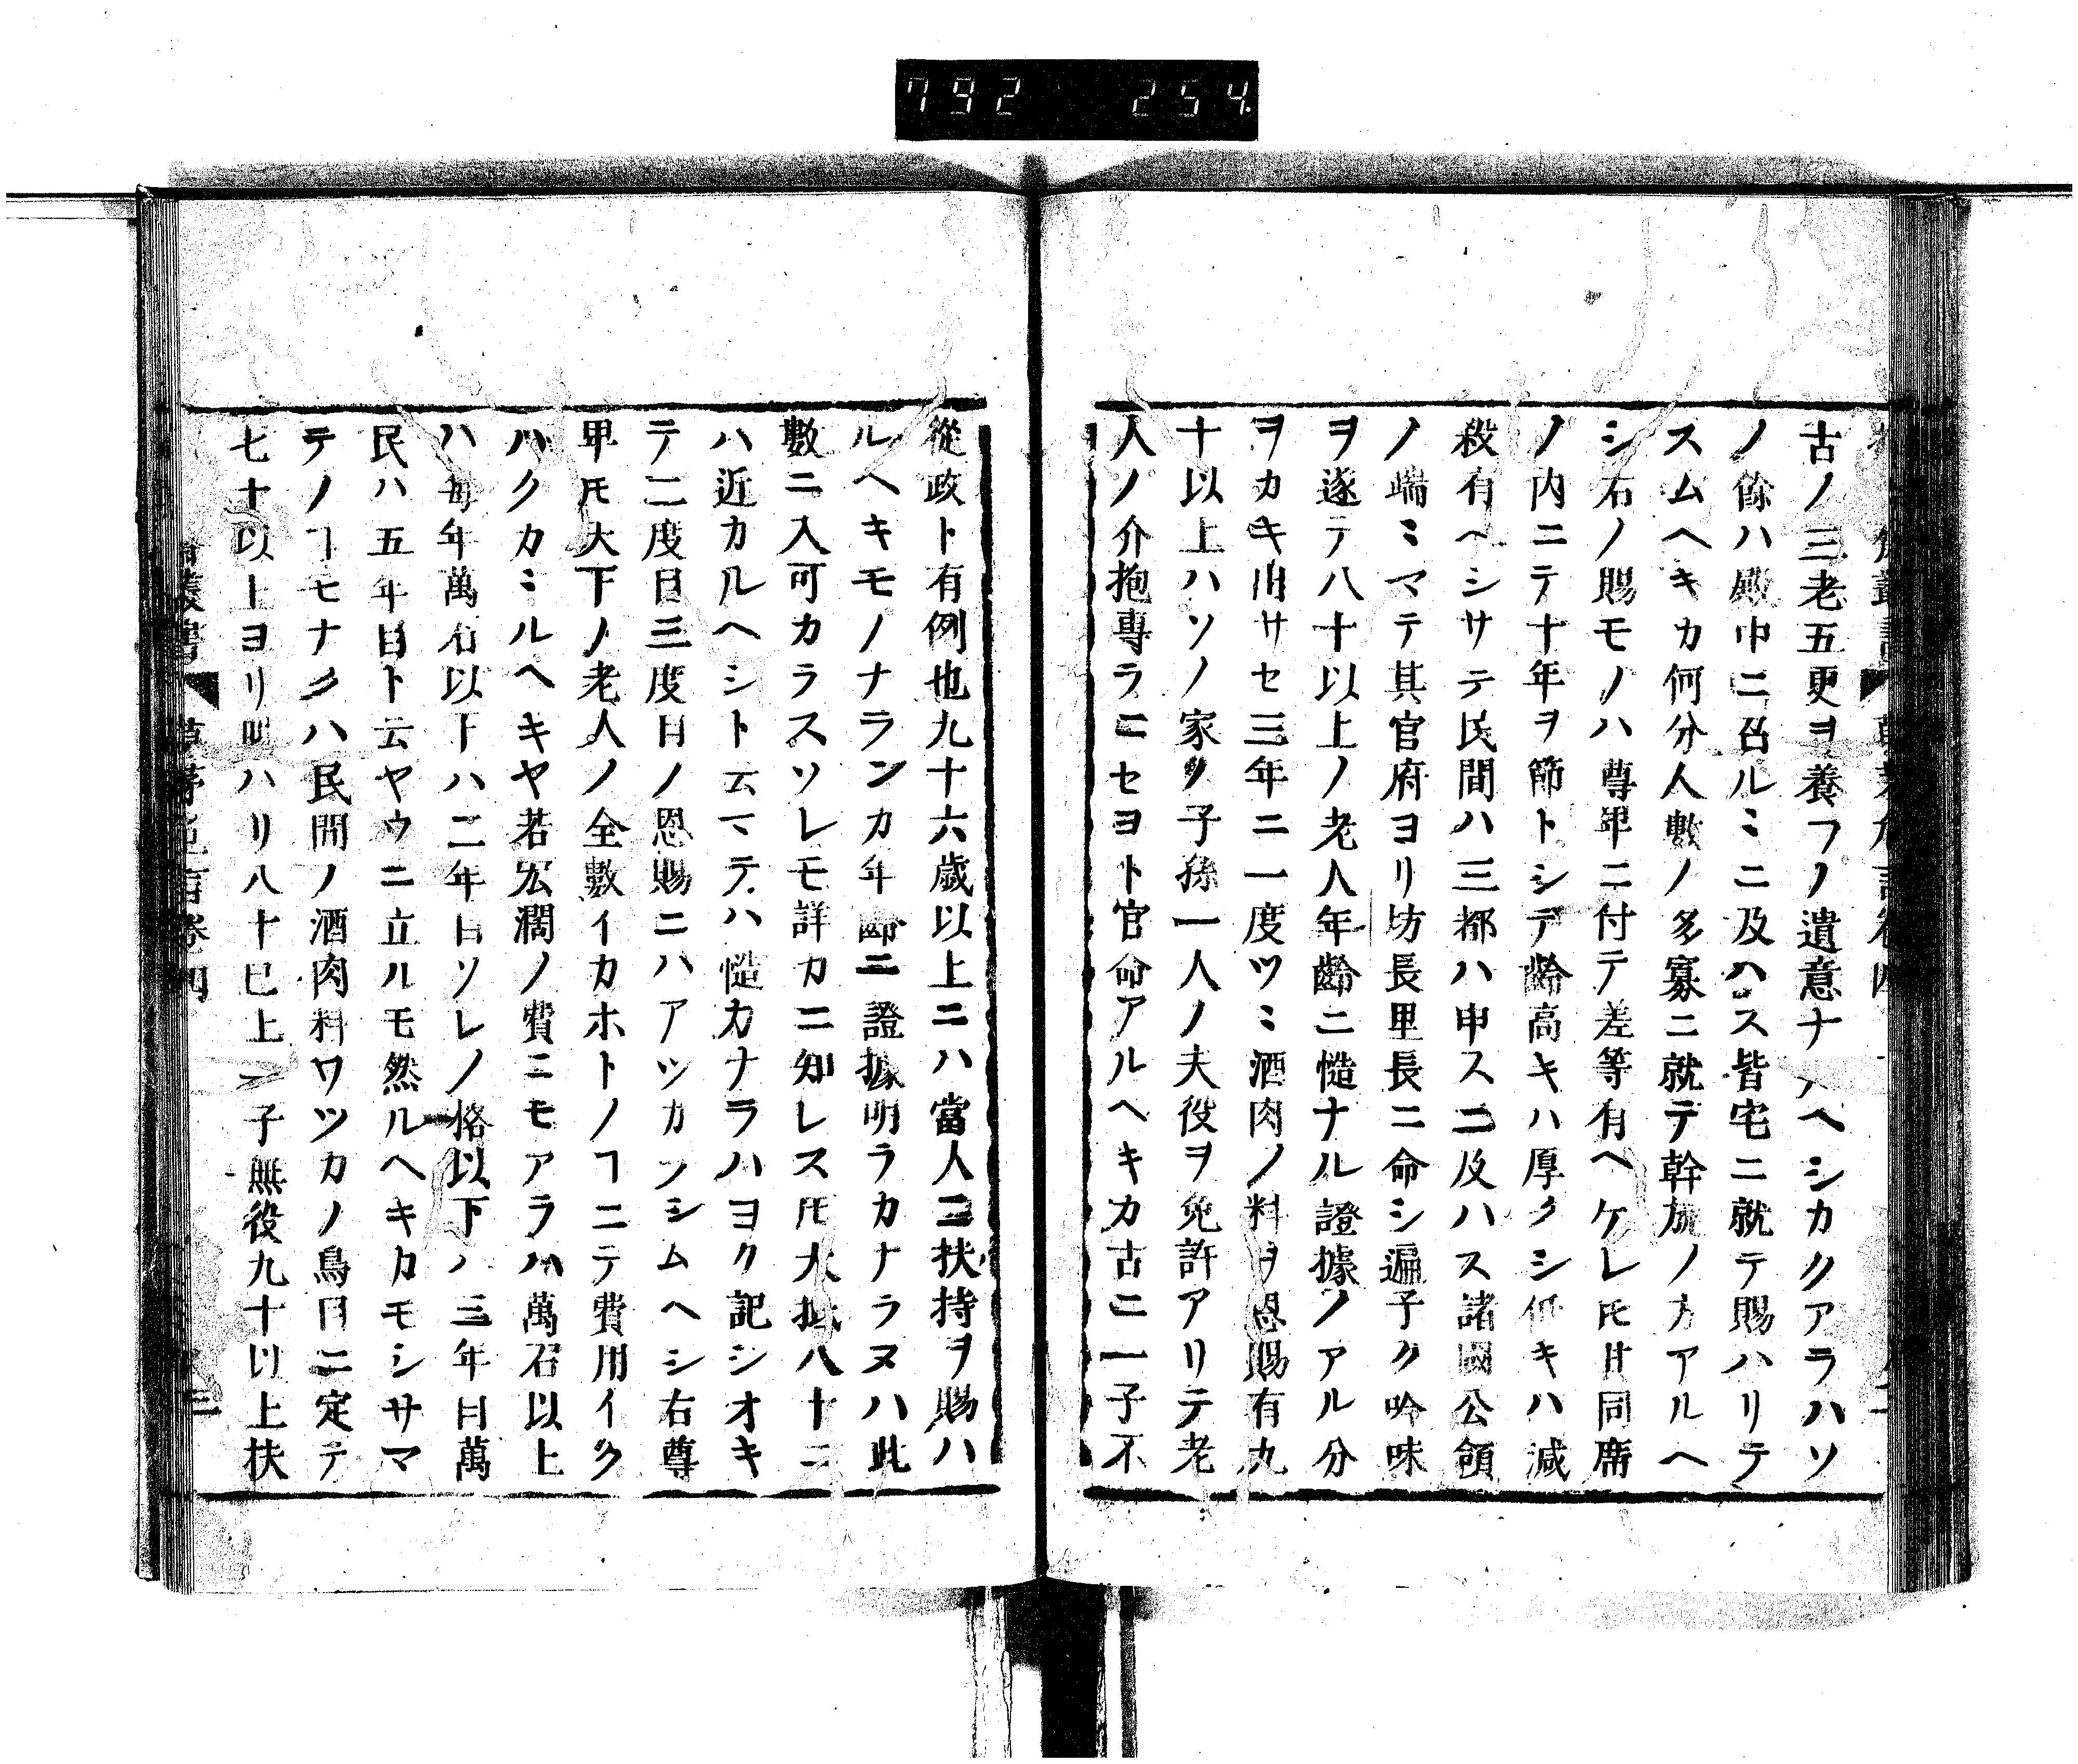 792 254
古ノ三老五更ヲ養フノ遺意ナルヘシカクアラハソ
ノ餘ハ殿中ニ召ルヽニ及ハス皆宅ニ就テ賜ハリテ
スムヘキカ何分人數ノ多寡ニ就テ幹旋ノ方アルヘ
シ右ノ賜モノハ尊卑ニ付テ差等有ヘケレ𪜈其同席
ノ内ニテ十年ヲ節トシテ齡高キハ厚クシ低キハ減
殺有ヘシサテ民間ハ三都ハ申スニ及ハス諸國公領
ノ端ミマテ其官府ヨリ坊長里長ニ命シ遍子ク吟味
ヲ遂テ八十以上ノ老人年齡ニ慥ナル證據ノアル分
ヲカキ出サセ三年ニ一度ツヽ酒肉ノ料ヲ恩賜有九
十以上ハソノ家ノ子孫一人ノ夫役ヲ免許アリテ老
人ノ介抱專ラニセヨト官命アルヘキカ古ニ一子不
從政ト有例也九十六歳以上ニハ當人ニ扶持ヲ賜ハ
ルヘキモノナランカ年齡ニ證據明ラカナラヌハ此
數ニ入可カラスソレモ詳カニ知レス𪜈大抵八十ニ
ハ近カルヘシト云マテハ慥カナラハヨク記シオキ
テ二度目三度目ノ恩賜ニハアツカラシムヘシ右尊
卑𪜈天下ノ老人ノ全數イカホトノヿニテ費用イク
ハクカミルヘキヤ若宏濶ノ費ニモアラハ萬石以上
ハ毎年萬石以下ハ二年目ソレノ格以下ハ三年目萬
民ハ五年目ト云ヤウニ立ルモ然ルヘキカモシサマ
テノヿモナクハ民間ノ酒肉料ワツカノ鳥目ニ定テ
七十以上ヨリ賜ハリ八十已上ハ一子無役九十以上扶